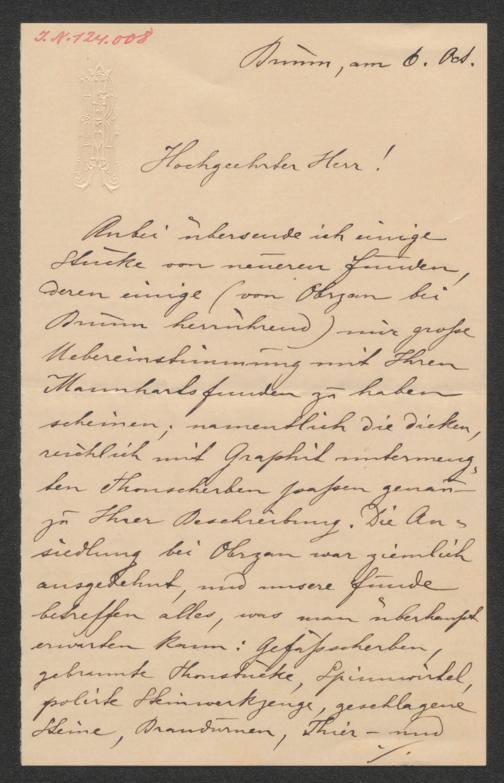 I.N. 124.008
Brünn, am 6. Oct.
Hochgeehrter Herr!
Anbei übersende ich einige
Stücke von neueren Funden,
deren einige (von Obrzan bei
Brünn herrührend) mir große
Uebereinstimmung mit Ihren
Mannhartsfunden zu haben
scheinen; namentlich die dicken,
reichlich mit Graphit untermeng-
ten Thonscherben passen genau
zu Ihrer Beschreibung. Die An-
siedlung bei Obrzan war ziemlich
ausgedehnt, und unsere Funde
betreffen alles, was man überhaupt
erwarten kann: Gefäßscherben,
gebrannte Thonstücke, Spinnwirtel,
polirte Steinwerkzeuge, geschlagene
Steine, Brandurnen, Thier- und
./.